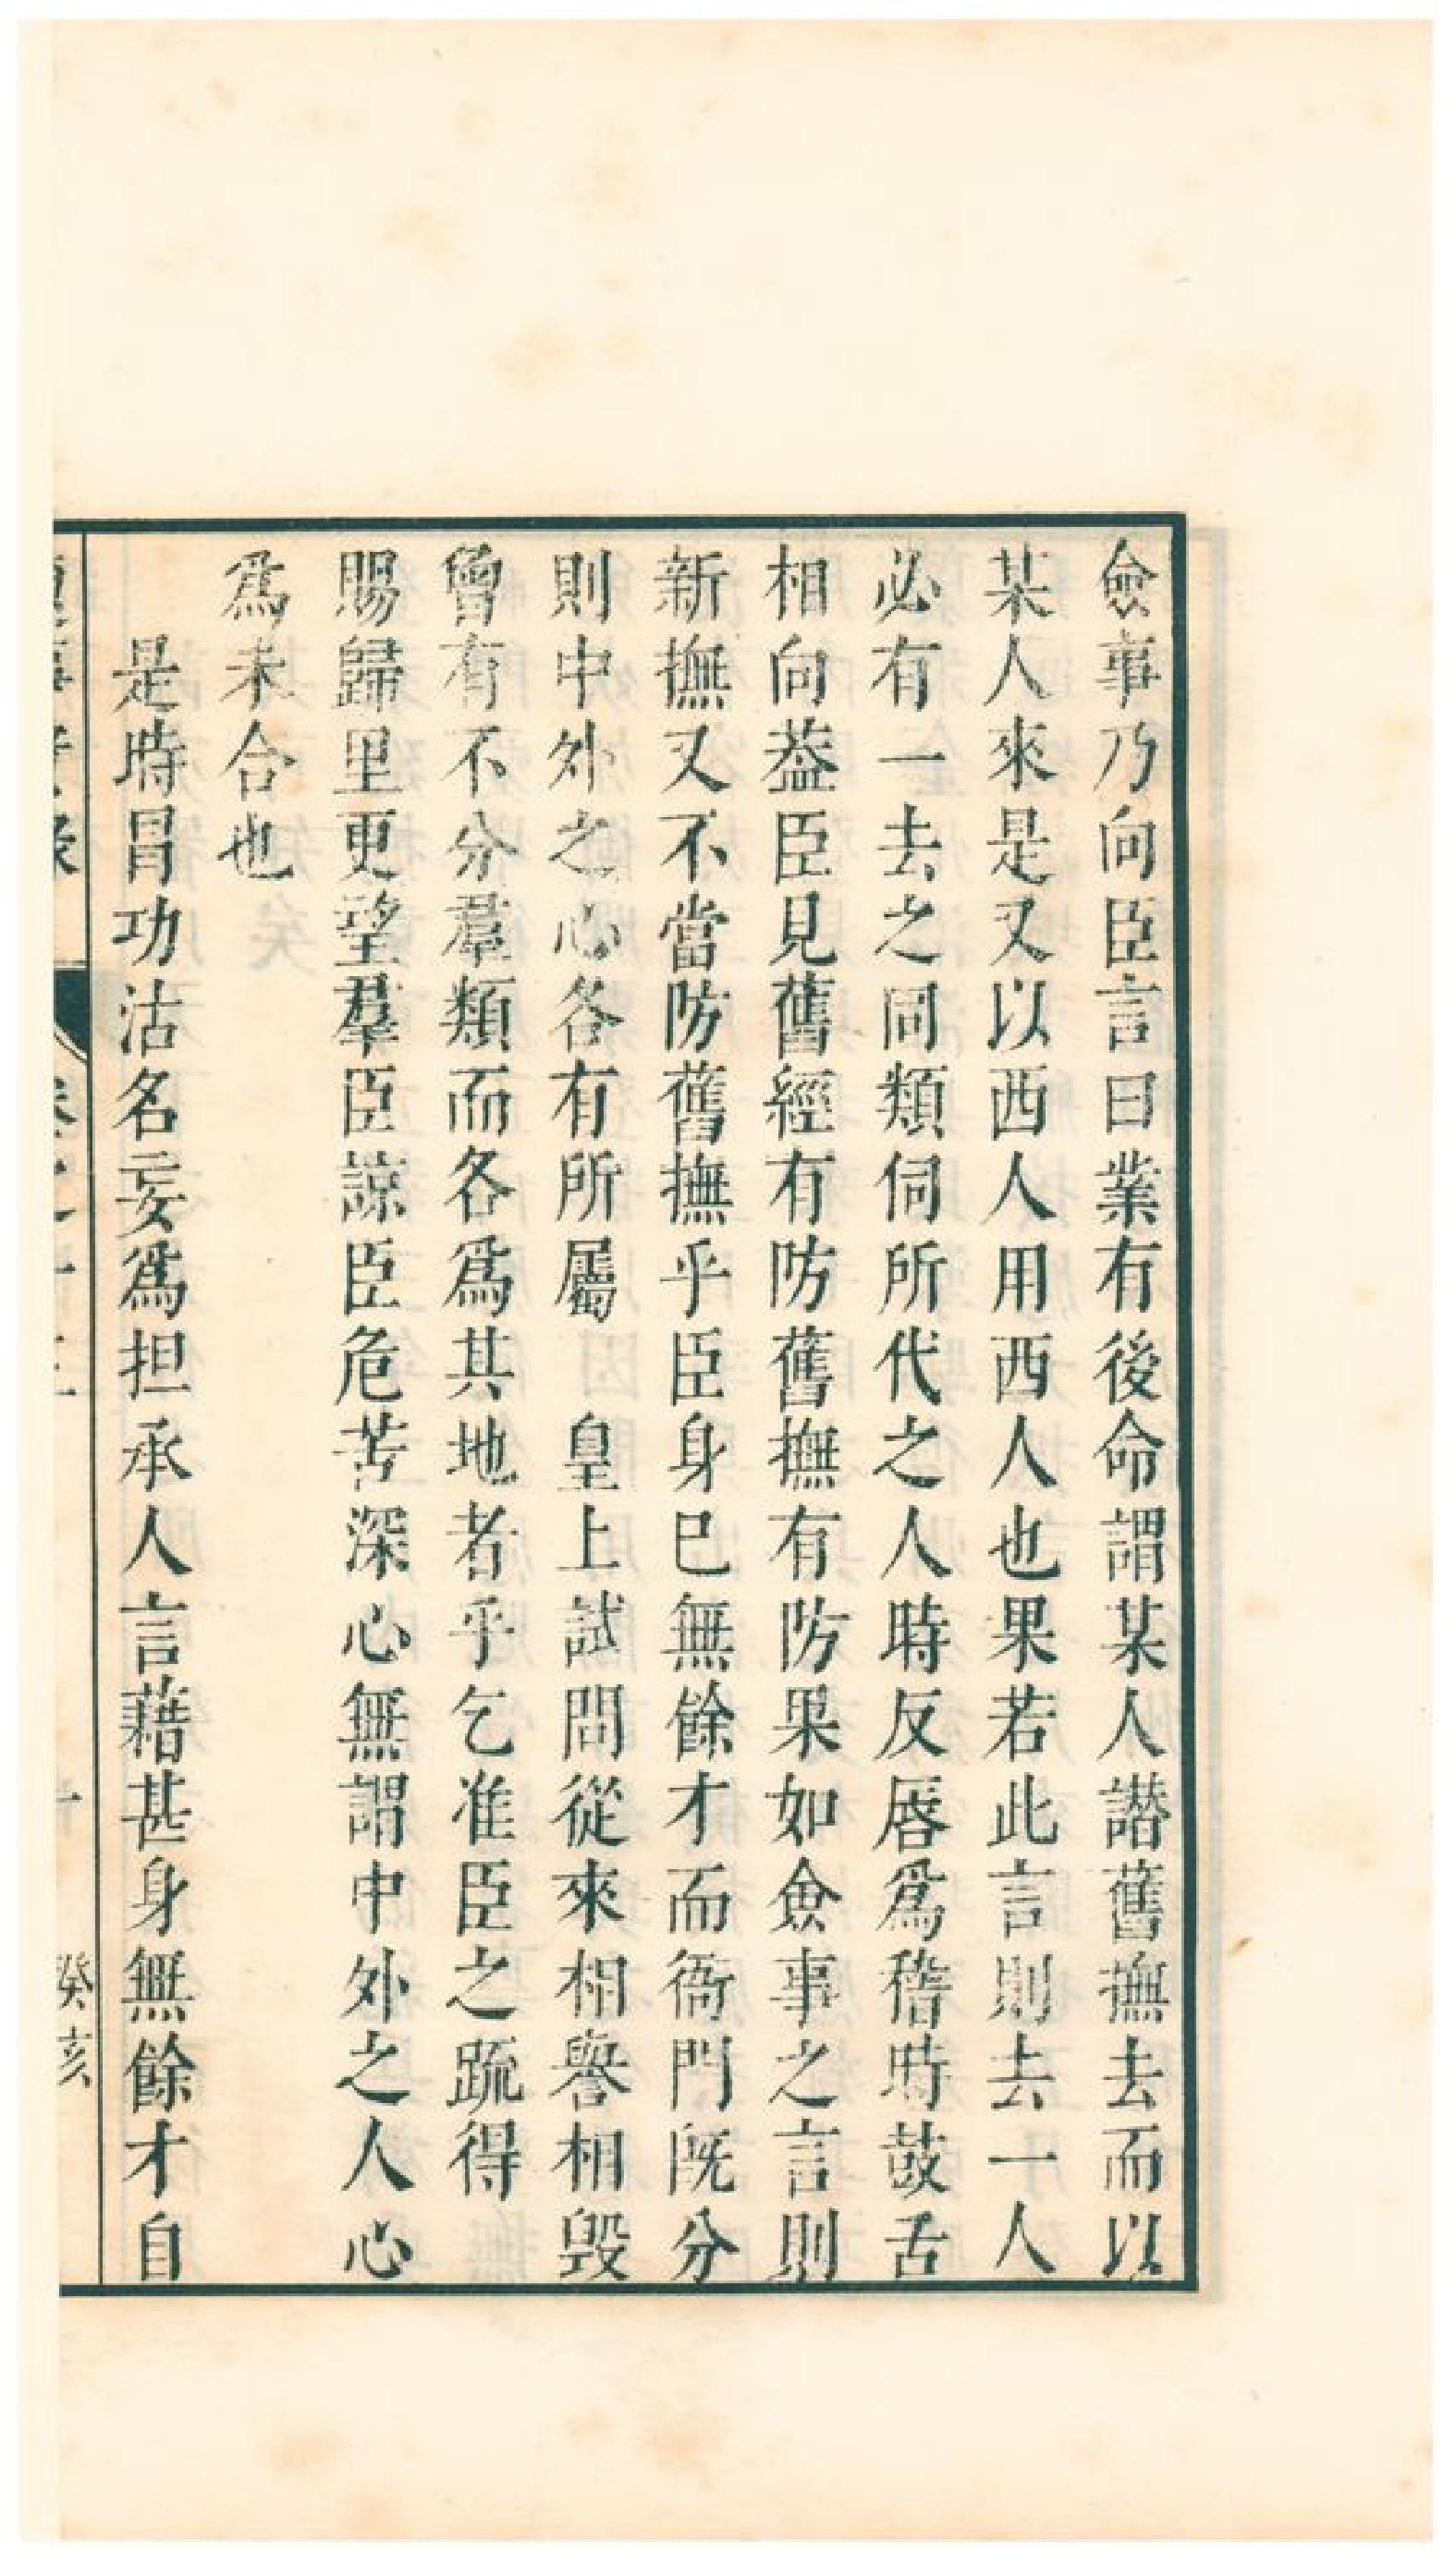 僉事乃向臣言曰業有後命謂某人譖舊撫去而以
某人來是又以西人用西人也果若此言則去一人
必有一去之同類伺所代之人時反唇爲稽時鼓舌
相向葢臣見舊經有防舊撫有防果如僉事之言則
新撫又不當防舊撫乎臣身已無餘才而衙門旣分
則中外之心各有所屬　皇上試問從來相譽相毀
曾有不分羣類而各爲其地者乎乞准臣之疏得
賜歸里更望羣臣諒臣危苦深心無謂中外之人心
爲未合也
　是時冒功沽名妄爲担承人言藉甚身無餘才自
癸亥